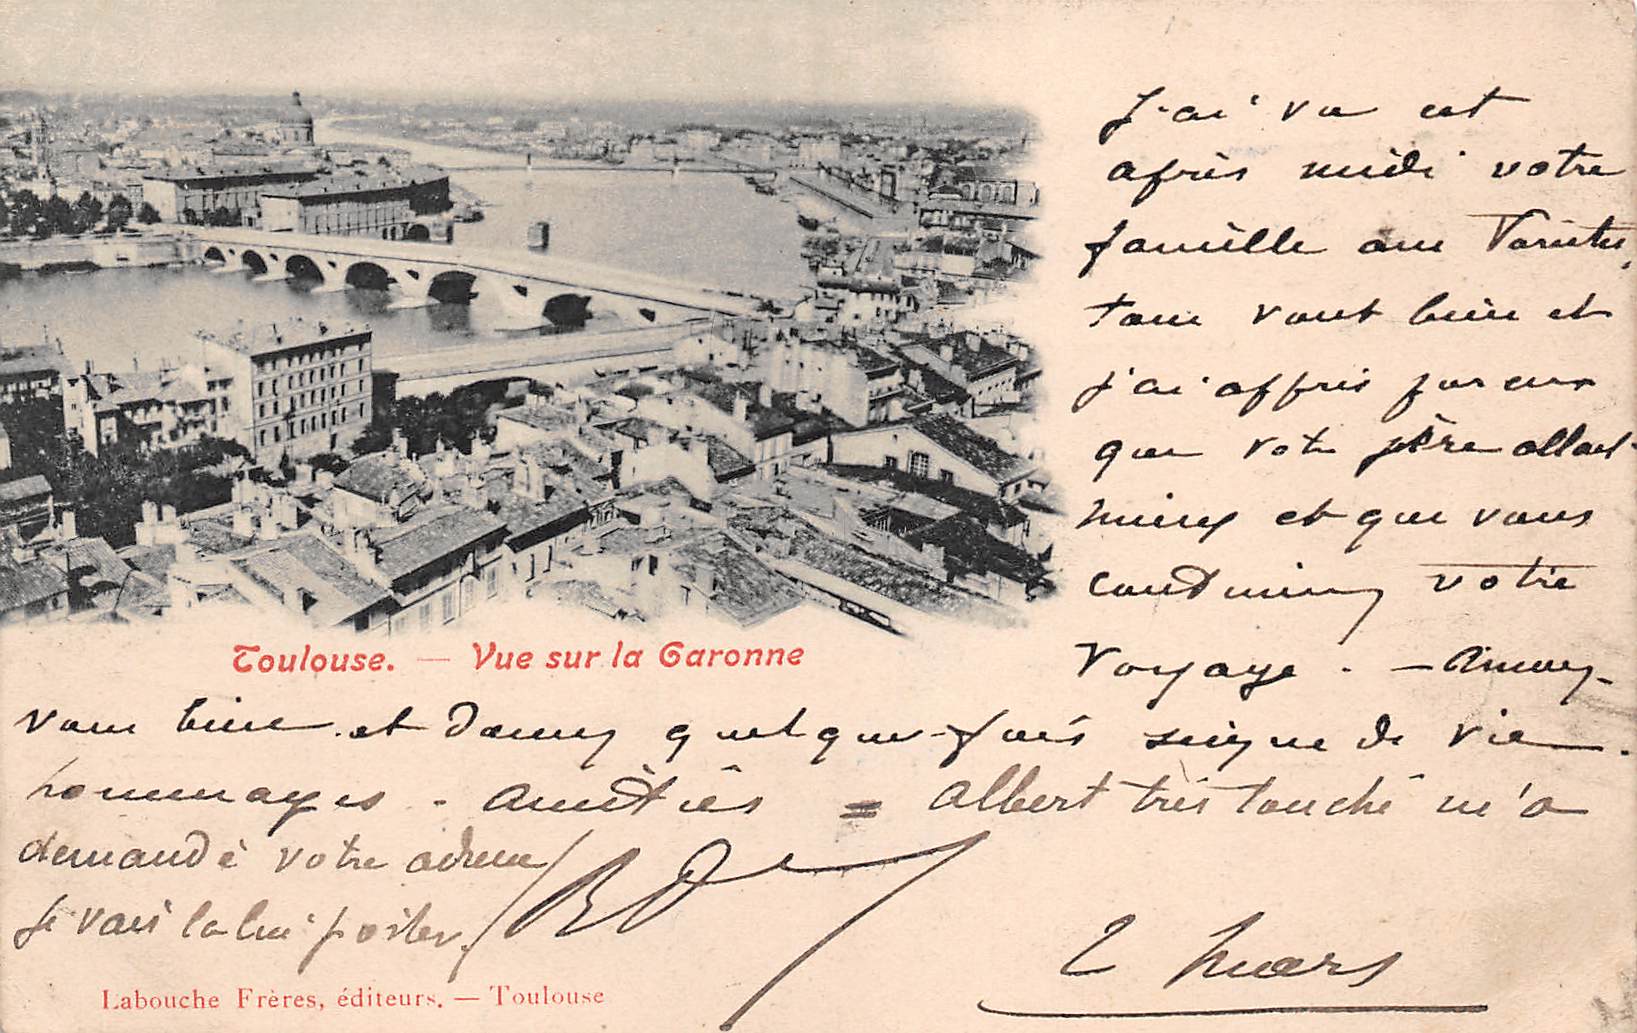 J'ai vu cet
après midi votre
famille aux Variétés,
tous vont bien et
j'ai appris par eux
que votre père allait
mieux et que vous
continuiez votre
voyage. — Amusez-
vous bien. et donnez quelque-fois signe de vie.
hommages. Amitiés = Albert très touché m'a
demandé votre adresse/
Je vais la lui porter./
2 Mars
Toulouse. — Vue sur la Garonne
Labouche Frères, éditeurs. — Toulouse